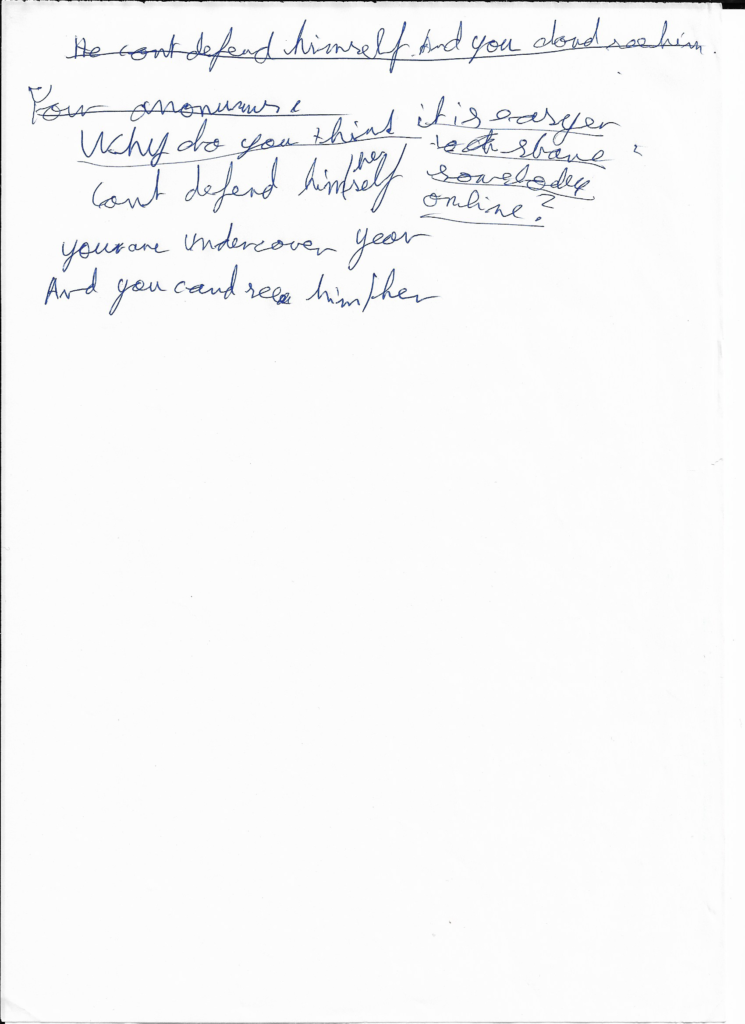 He cont defend himself. And you dond see him.
Your anonumus.
Why do you think it is easyer
to shane
cont defend him/herself somebody
online?
you are undercover year
And you cand see him/her